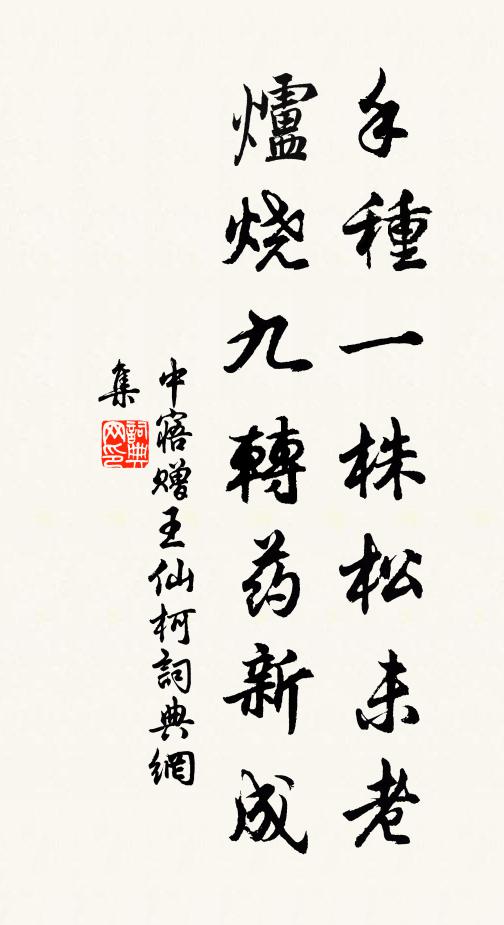 手種一株松未老
爐烧九轉药新成
中寤赠王仙柯詞典網
集
詞典网印